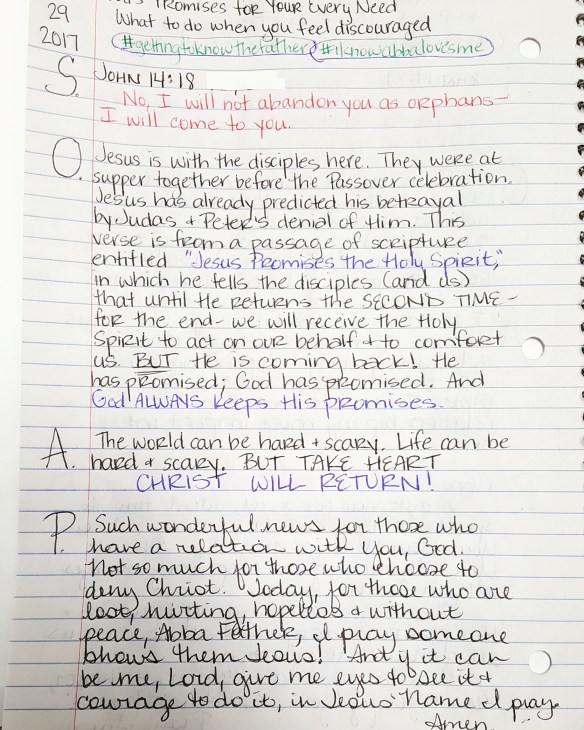 Promises for Your Every Need
29 What to do when you feel discouraged
2017 #gettingtoknowthefather #iknowabbalovesme
S. JOHN 14:18
No, I will not abandon you as orphans-
I will come to you.
O. Jesus is with the disciples here. They were at
supper together before the Passover celebration.
Jesus has already predicted his betrayal
by Judas + Peter's denial of Him. This
verse is from a passage of scripture
entitled "Jesus Promises the Holy Spirit,"
in which he tells the disciples (and us)
that until He returns the SECOND TIME-
for the end- we will receive the Holy
Spirit to act on our behalf + to comfort
us. BUT He is coming back! He
has promised; God has promised. And
God ALWAYS keeps His promises.
A. The world can be hard + scary. Life can be
hard + scary. BUT TAKE HEART
CHRIST WILL RETURN!
P. Such wonderful news for those who
have a relation with You, God.
Not so much for those who choose to
deny Christ. Today, for those who are
lost, hurting, hopeless & without
peace, Abba Father, I pray someone
shows them Jesus! And if it can
be me, Lord, give me eyes to see it +
courage to do it, in Jesus' Name I pray.
Amen.